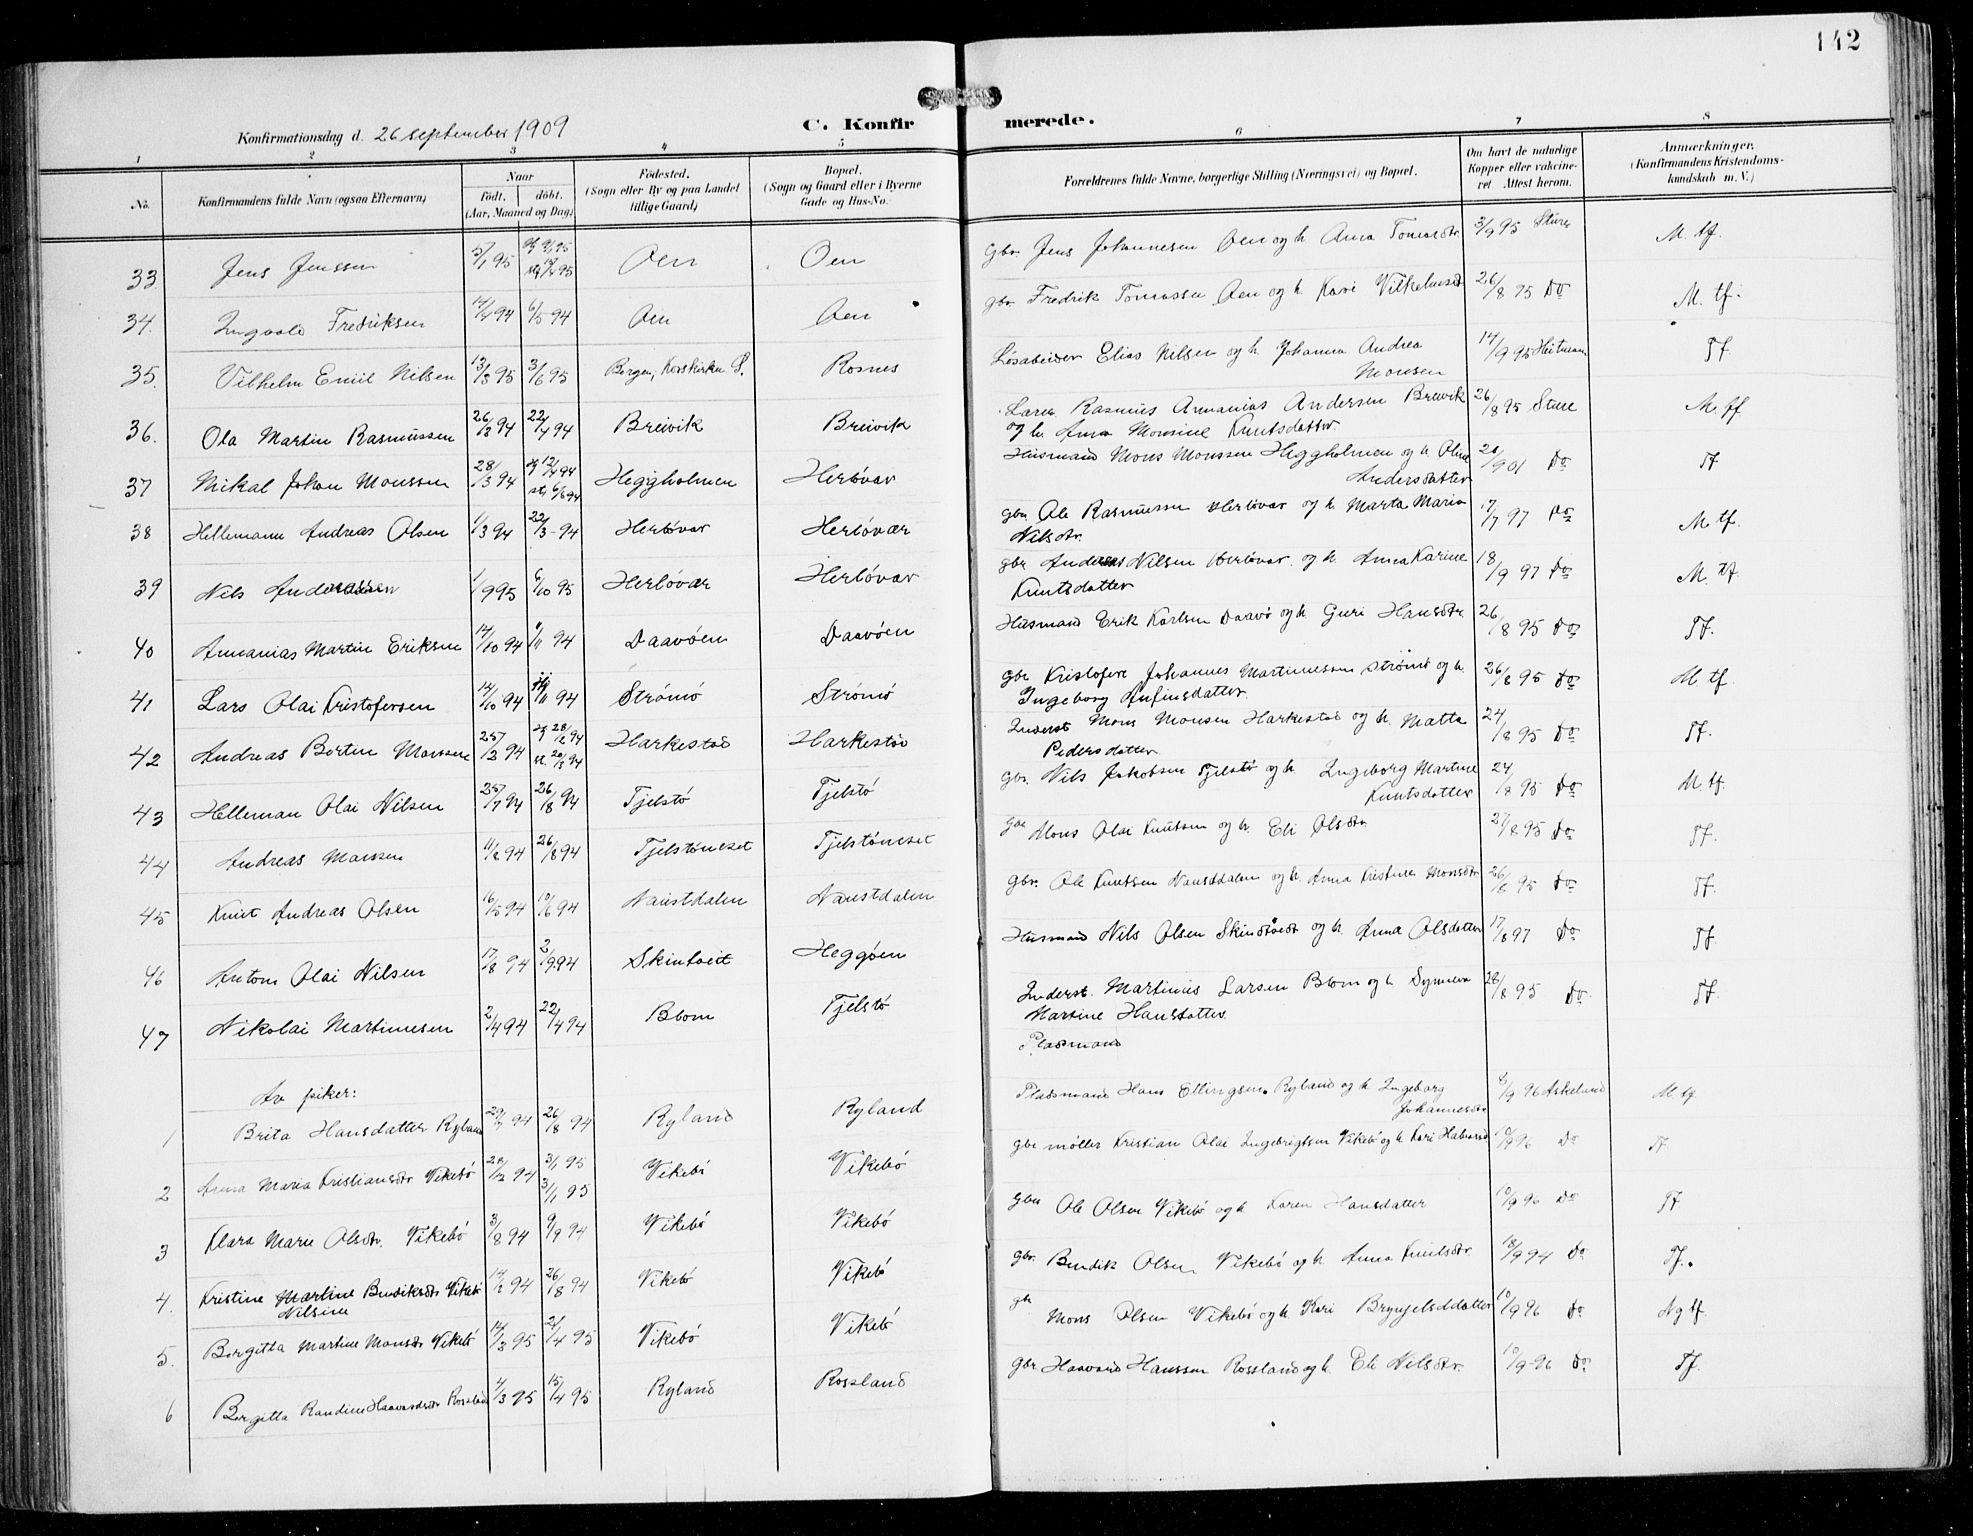 142
Konfirmationsdag d. 26 september 1909
C. Konfirmerede.
1 2 3 4 5 6 7 8
No. Konfirmandens fulde Navn (ogsaa Efternavn) Naar født. døbt. (Aar, Maaned og Dag) Fødested. (Sogn eller By og paa Landet tillige Gaard) Bopæl. (Sogn og Gaard eller i Byerne Gade og Hus-No. Forældrenes fulde Navne, borgerlige Stilling (Næringsvei) og Bopæl. Om havt de naturlige Kopper eller vakcineret. Attest herom. Anmærkninger. (Konfirmandens Kristendomskundskab m. V.)
33 Jens Jenssen 5/1 95 Oen Oen Gbr. Jens Johannesen Oen og h. Anna Tomasdtr. 3/9 95 Sture M. tf.
34. Ingvald Fredriksen 14/4 94 6/5 94 Oen Oen gbr. Fredrik Tomassen Oen og h. Kari Vilhelmsd 26/8 95 Do M. tf.
35. Vilhelm Emil Nilsen 13/3 95 3/6 95 Bergen, Korskirken S. Rosnes Løsarbeider Elias Nilsen og h. Johanna Andrea 14/9 95 Heitmann Tf.
Monsen
36. Ola Martin Rasmussen 26/3 94 22/4 94 Breivik Breivik Lærer Rasmus Annanias Andersen Breivik 26/8 95 Sture M. tf
og h. Anna Monsine Knutsdatter
37 Mikal Johan Monssen 28/3 94 12/4 94 6/5 94 Heggholmen Herløvær Husmand Mons Monssen Heggholmen og h. Oline 9 01 Do Tf
Andersdatter
38 Hellemann Andreas Olsen 1/3 94 22/3 94 Herløvær Herløvær gbr. Ole Rasmussen Herløvær og h. Marta Maria 17/7 97 Do M. tf.
Nilsdtr.
39 Nils Anderssen 1/9 95 6/10 95 Herløvær Herløvær gbr Anders Nilsen Herløvær og h. Anna Karine 18/9 97 Do M. tf.
Knutsdatter
40 Annanias Martin Eriksen 14/10 94 94 Daavøen Daavøen Husmand Erik Karlsen Daavø og h. Guri Hansdtr. 26/8 95 Do Tf.
41 Lars Olai Kristofersen 14/10 94 94 Strømø Strømø gbr Kristofer Johannes Martinussen Strømø og h. 26/8 95 Do M. tf.
Ingeborg Anfinsdatter
42 Andreas Bertin Monssen 25/2 94 28/2 94 20/3 94 Harkestad Harkestad Inderst Mons Monsen Harkestad og h. Matta 24/8 95 Do Tf.
Pedersdatter
43 Helleman Olai Nilsen 25/7 94 26/8 94 Tjelstø Tjelstø gbr. Nils Jakobsen Tjelstø og h. Ingeborg Martine 24/8 95 Do M. tf.
Knutsdatter
44 Andreas Monsen 11/8 94 26/8 94 Tjelstøneset Tjelstøneset gbr Mons Olai Knutsen og h. Eli Olsdtr. 27/8 95 Do Tf.
45 Knut Andreas Olsen 16/5 94 10/6 94 Naustdalen Naustdalen gbr. Ole Knutsen Naustdalen og h. Anna Kristine Monsdtr. 26/8 95 Do Tf.
46 Anton Olai Nilsen 17/8 94 2/9 94 Skintveit Heggøen Husmand Nils Olsen Skintveit og h. Anna Olsdatter 17/8 97 Do Tf.
47 Nikolai Martinusen 2/4 94 22/4 94 Blom Tjelstø Inderst. Martinus Larsen Blom og h. Synneva 28/8 95 Do Tf.
Martine Hansdatter
Pladsmand
Av piker:
1 Brita Hansdatter Ryland 29/7 94 26/8 94 Ryland Ryland Pladsmand Hans Ellingsen Ryland og h. Ingeborg 8/9 96 Askeland M. tf
Johannesdtr
2 Anna Maria Kristiansdtr Vikebø 28/12 94 3/1 95 3/1 95 Vikebø Vikebø gbr møller Kristian Olai Ingebrigtsen Vikebø og h Kari Halvorsd 10/9 96 Do Tf.
3 Klara Marie Olsdtr. Vikebø 3/8 94 9/9 94 Vikebø Vikebø gbr Ole Olsen Vikebø og h Karen Hansdatter 10/9 96 Do Tf.
4. Kristine Martine Bendiksdtr Vikebø 26/8 94 Vikebø Vikebø gbr. Bendik Olsen Vikebø og h Anna Knutsdtr. 18/9 94 Do Tf.
Nilsine
5. Bergitta Martine Monsdtr Vikebø 14/3 95 21/4 95 Vikebø Vikebø gbr Mons Olsen Vikebø og h Kari Brynjelsddatter 10/9 96 Do Ng tf
6 Bergitta Randine Haavardsdtr Rossland 4/3 95 15/4 95 Ryland Rossland gbr Haavard Hanssen Rossland og h. Eli Nilsdtr. 10/9 96 Do Tf.